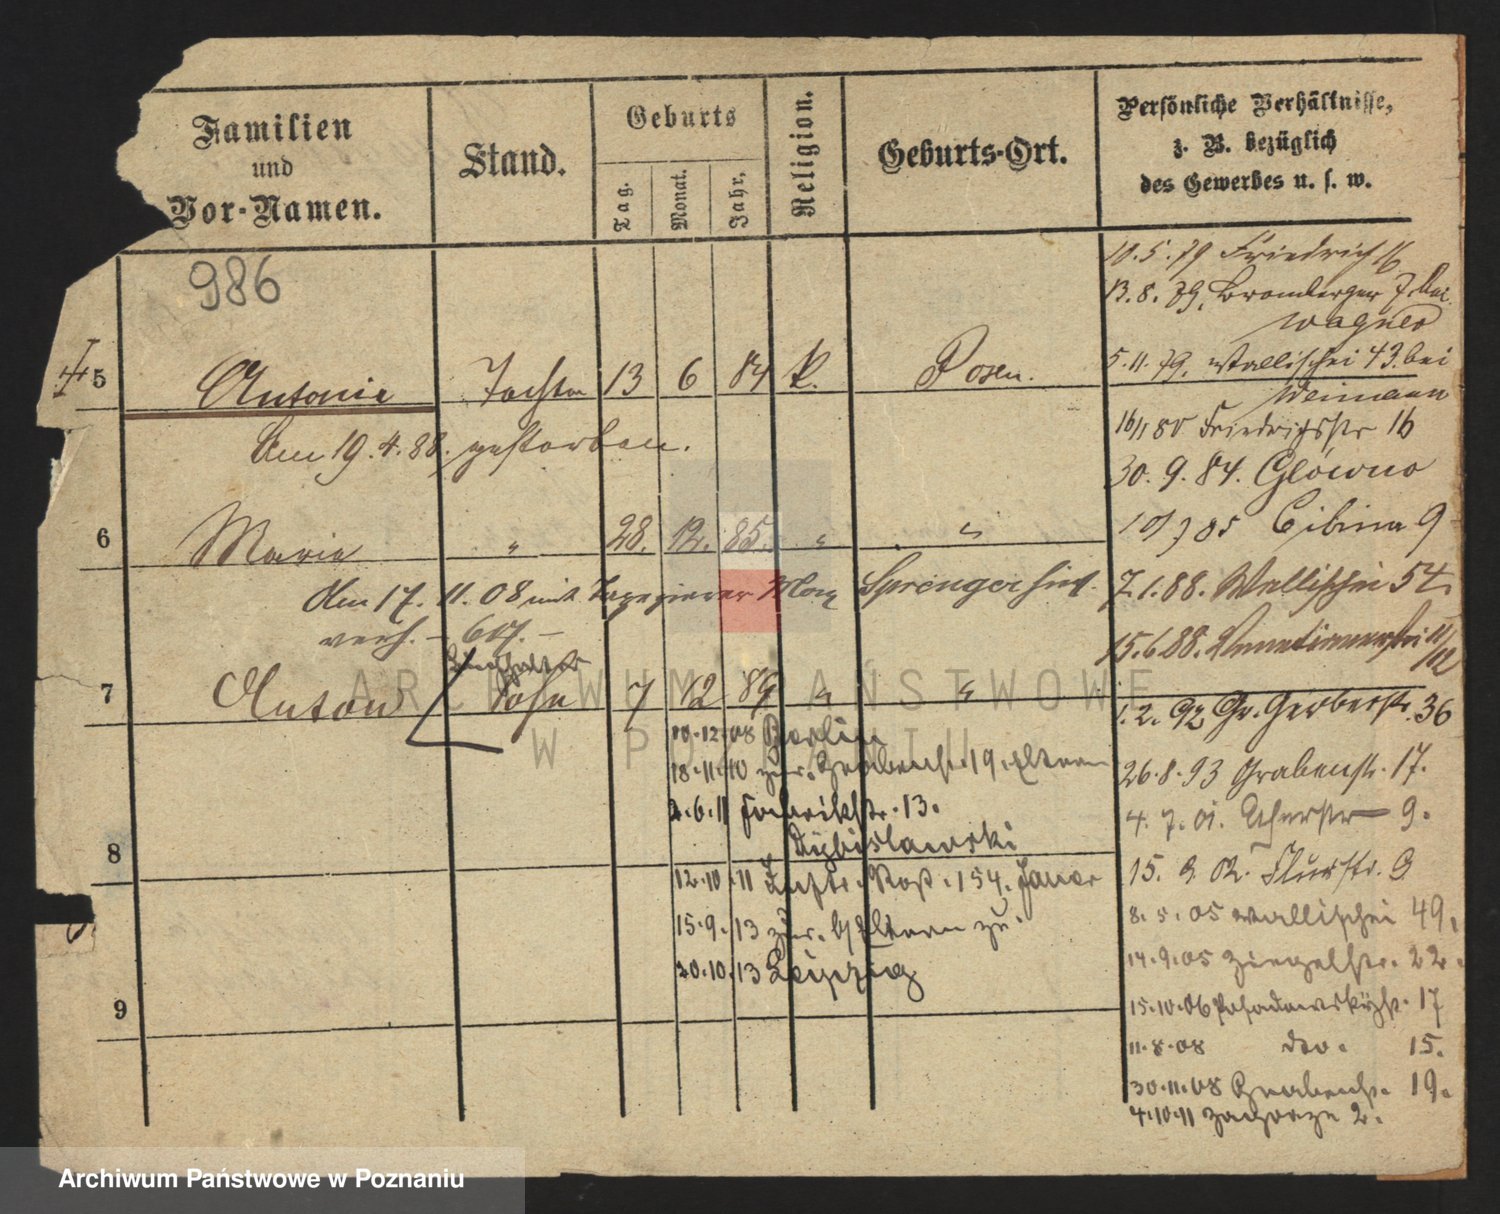 Familien
und
Vor-Namen.
Stand.
Geburts
Tag.
Monat.
Jahr.
Religion.
Geburts-Ort.
Persönliche Verhältnisse,
z. B. bezüglich
des Gewerbes u. s. w.
986
5 Antonie Tochter 13 6 84 k. Posen.
Am 19.4.88. gestorben.
6 Maria " 28. 12. 85. " "
Am 17. 11. 08 mit Tapezierer Max Sprenger hier.
verh. - 607. -
7 Anton Sohn 7 12 89 " "
10.12.08 Berlin
18.11.10 zur. Grabenstr. 19. Eltern
2.6.11 Fabrikstr. 13.
8
12.10.11 154.
15.9.13 zur. Eltern
20.10.13 Leipzig
9
10.5.79 Friedrich 16
13.8.79. Bromberger
Wagner
5.11.79. Wallischei 43. bei
Weimann
16/1 80 Friedrichstr 16
30. 9. 84. Główno
Cibina 9
7.1.88. Wallischei 54
15.6.88. Venetianerstr
1.2.92 Gr. Gerberstr. 36
26.8.93 Grabenstr. 17.
4.7.01. 9.
15. 9 02. Flurstr. 9
8.5.05 Wallischei 49.
14.9.05 Ziegelstr. 22.
15.10.06 Posadowskystr. 17
11.8.08 dto. 15.
30.11.08 Grabenstr. 19.
4.10.11 Zagorze 2.
ARCHIWUM PAŃSTWOWE
W POZNANIU
Archiwum Państwowe w Poznaniu